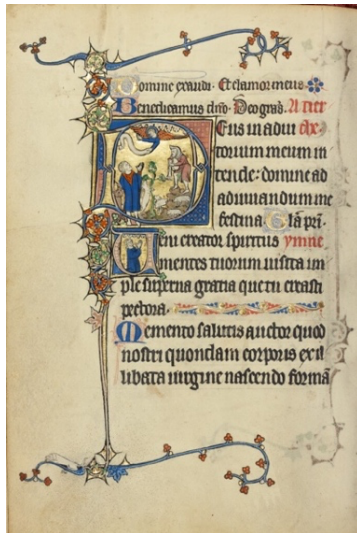 Domine exaudi. Et clamor meus
Benedicamus dno. Deo gras. A tier
Deus in adiu che
torium meum in
tende: domine ad
adiuuandum me
festina. Gla pri.
Ueni creator spiritus ymne
mentes tuorum uisita im
ple superna gratia que tu creasti
pectora.
Memento salutis auctor quod
nostri quondam corporis ex il
libata uirgine nascendo formā